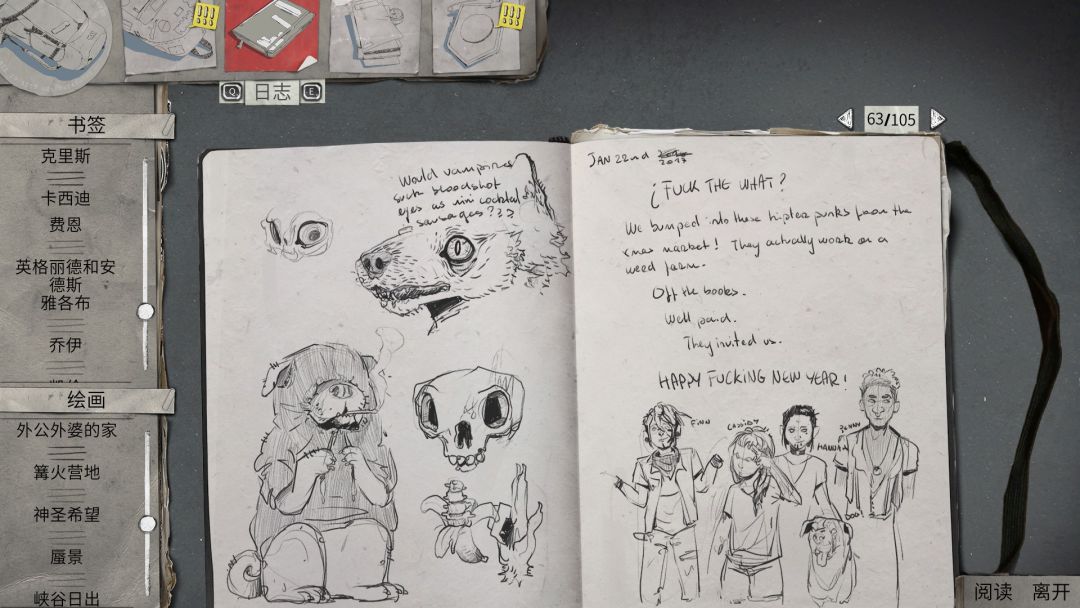 Q 日志 E
书签
克里斯
卡西迪
费恩
英格丽德和安
德斯
雅各布
乔伊
绘画
外公外婆的家
篝火营地
神圣希望
蜃景
峡谷日出
63/105
Would vampires
suck bloodshot
eyes as mini cocktail
sausages???
JAN 22nd 2017
¿FUCK THE WHAT?
We bumped into these hipster punks from the
xmas market! They actually work on a
weed farm.
Off the books.
Well paid.
They invited us.
HAPPY FUCKING NEW YEAR!
FINN
CASSIDY
HANNAH
阅读 离开